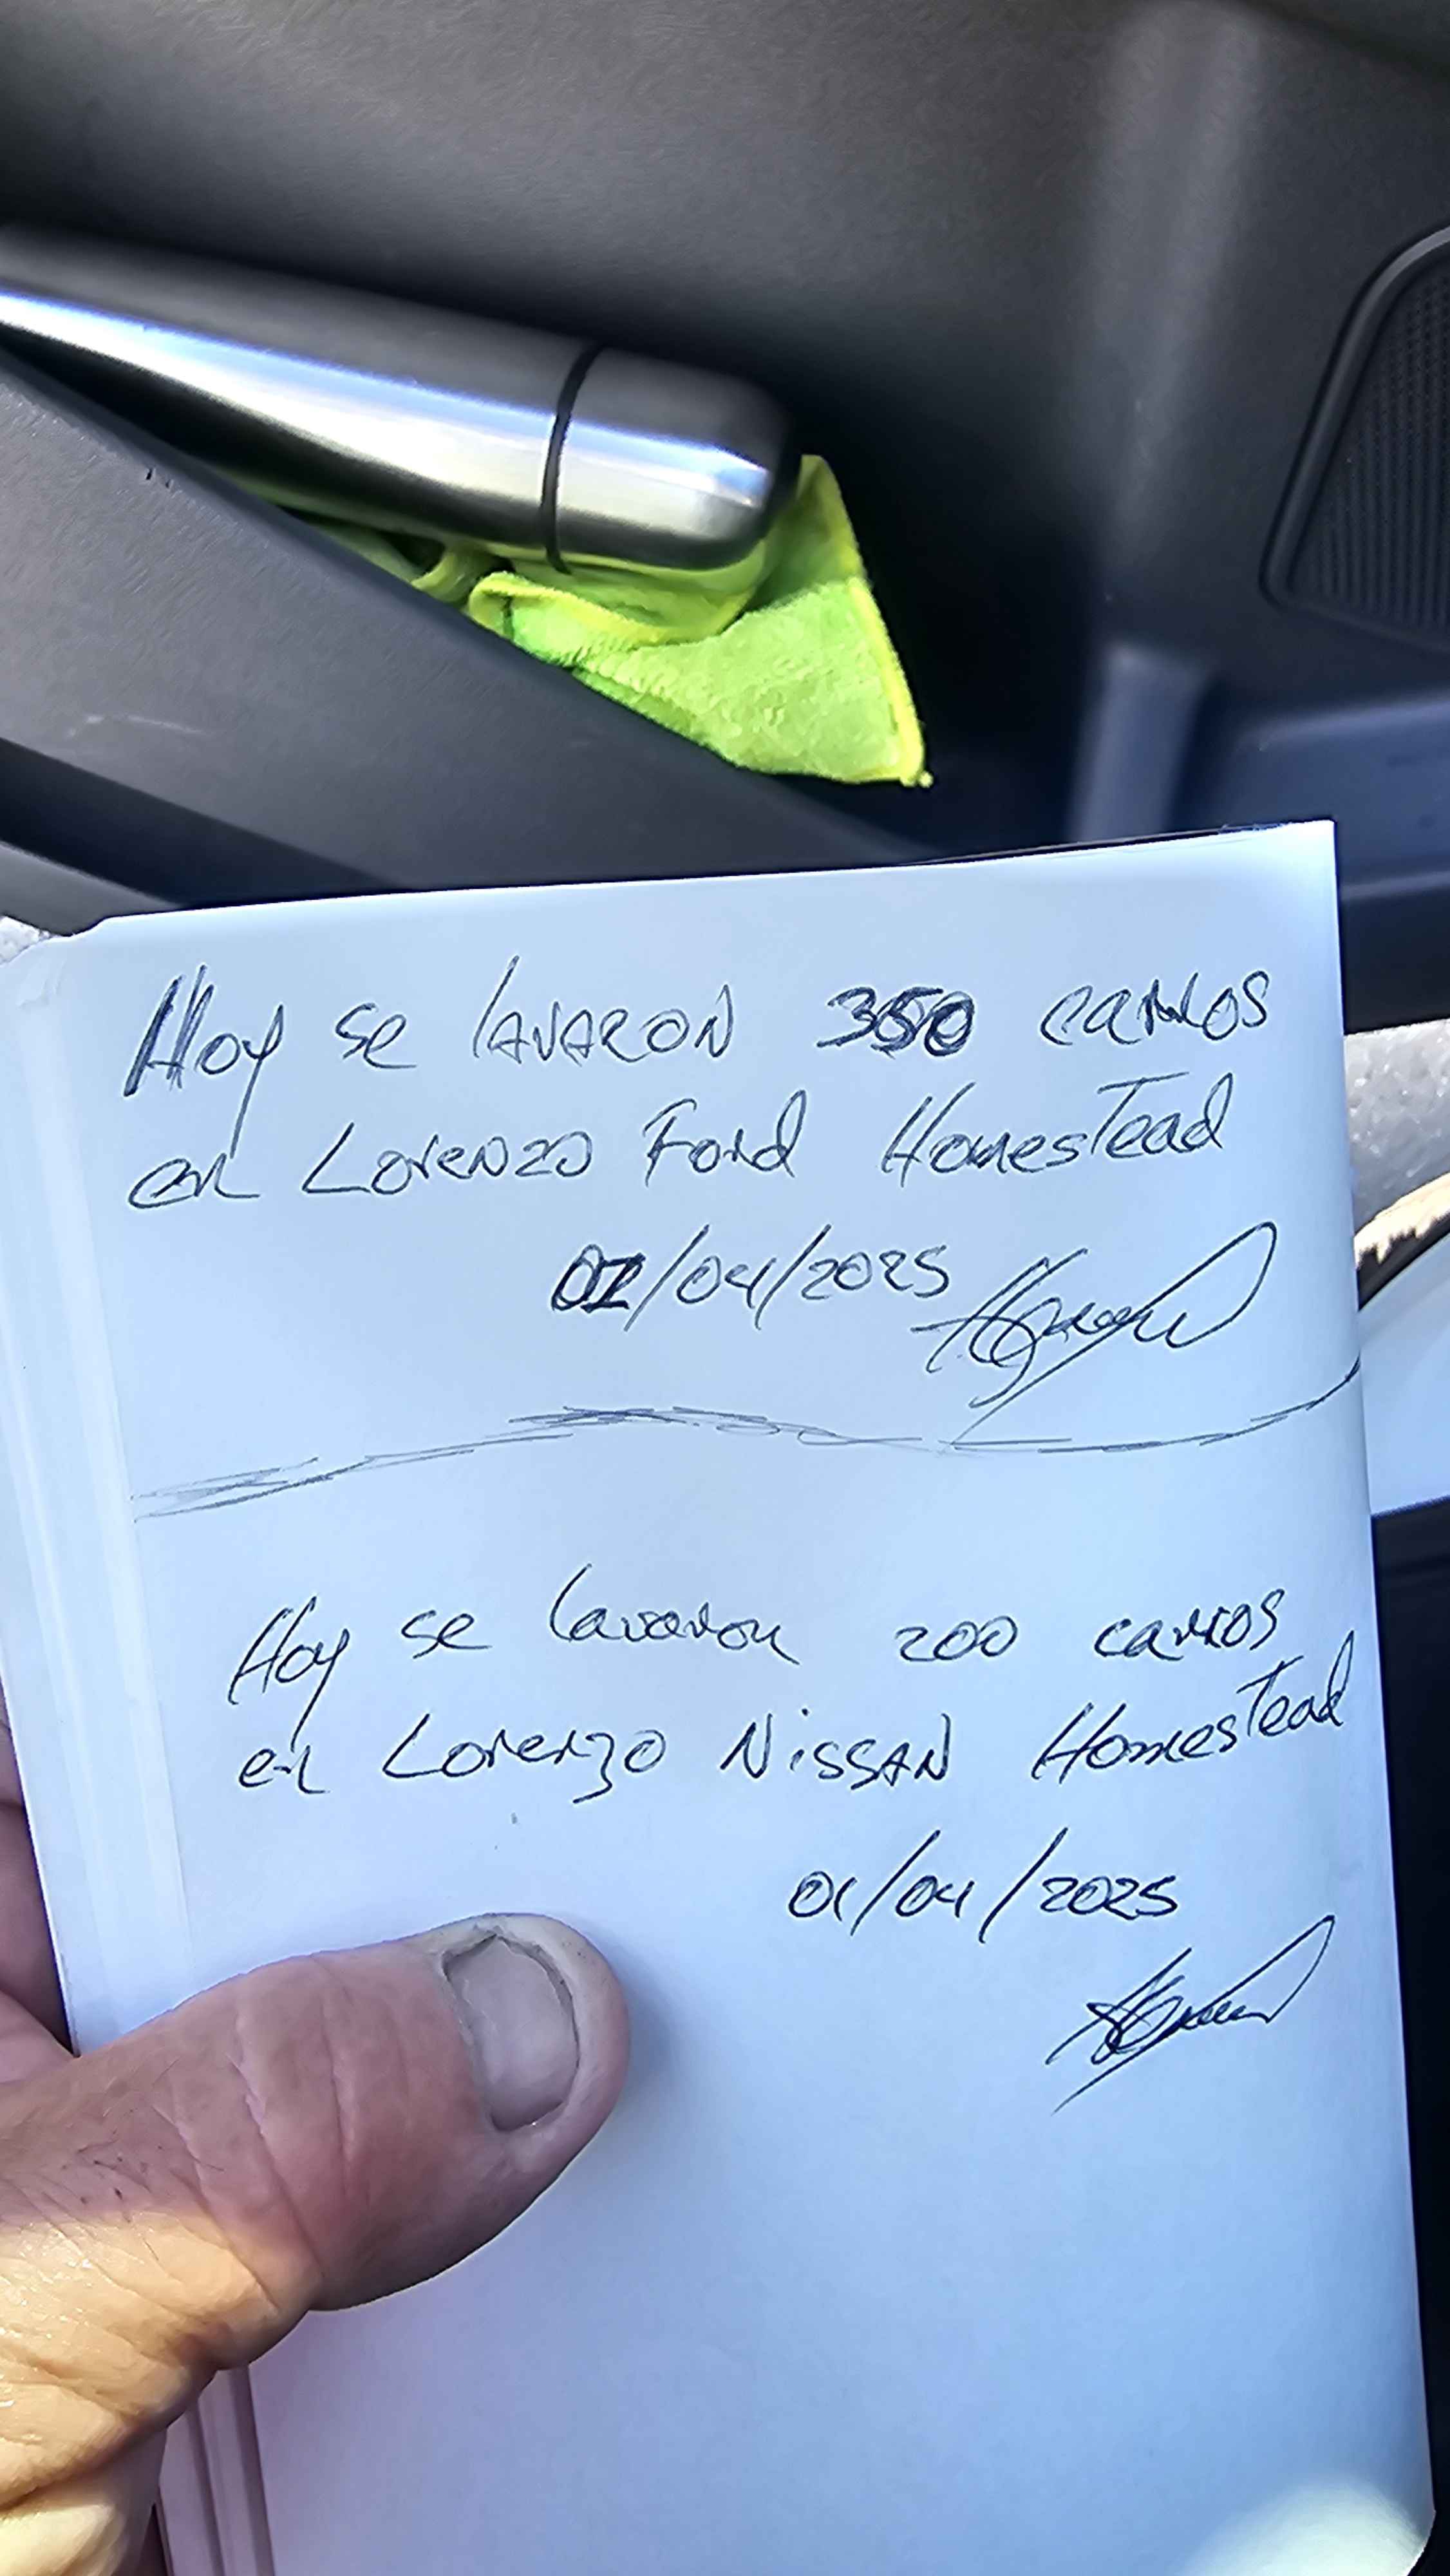 Hoy se lavaron 350 carros
en Lorenzo Ford Homestead
/04/2025
Hoy se lavaron 200 carros
en Lorenzo Nissan Homestead
01/04/2025